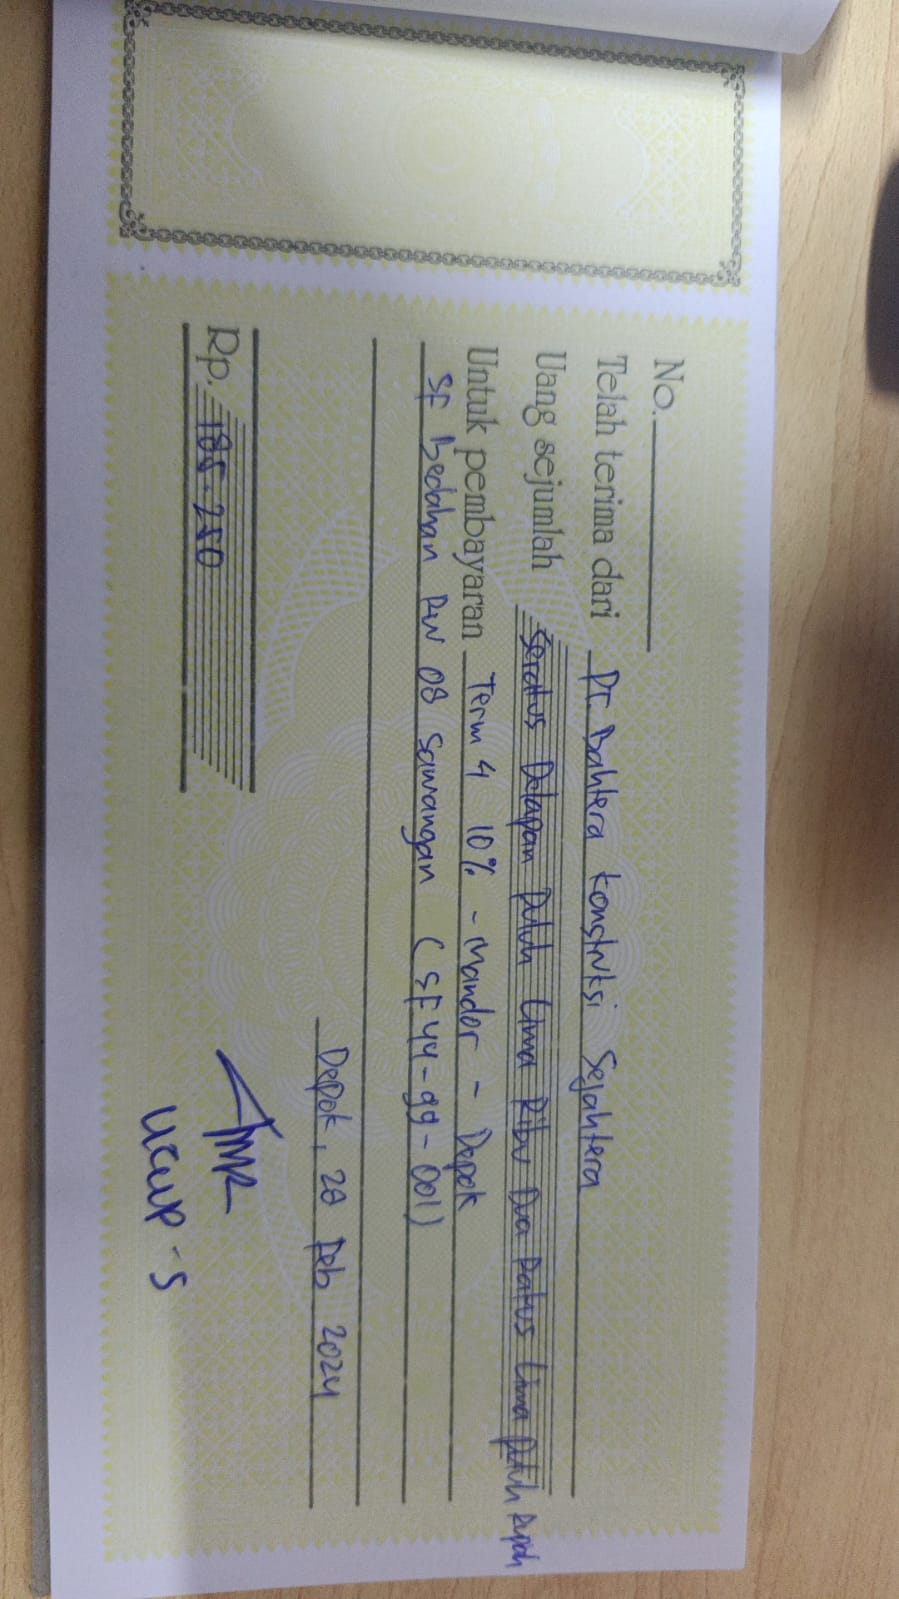 No.
Telah terima dari PT. Bahtera Konstruksi Sejahtera
Uang sejumlah Seratus Delapan Puluh Lima Ribu Dua Ratus Lima Puluh Rupiah
Untuk pembayaran Term 4 10% - Mandor - Depok
SF Bedahan RW 08 Sawangan (SF44-99-001)
Depok, 28 Feb 2024
Rp. 185.250
Ucup - S